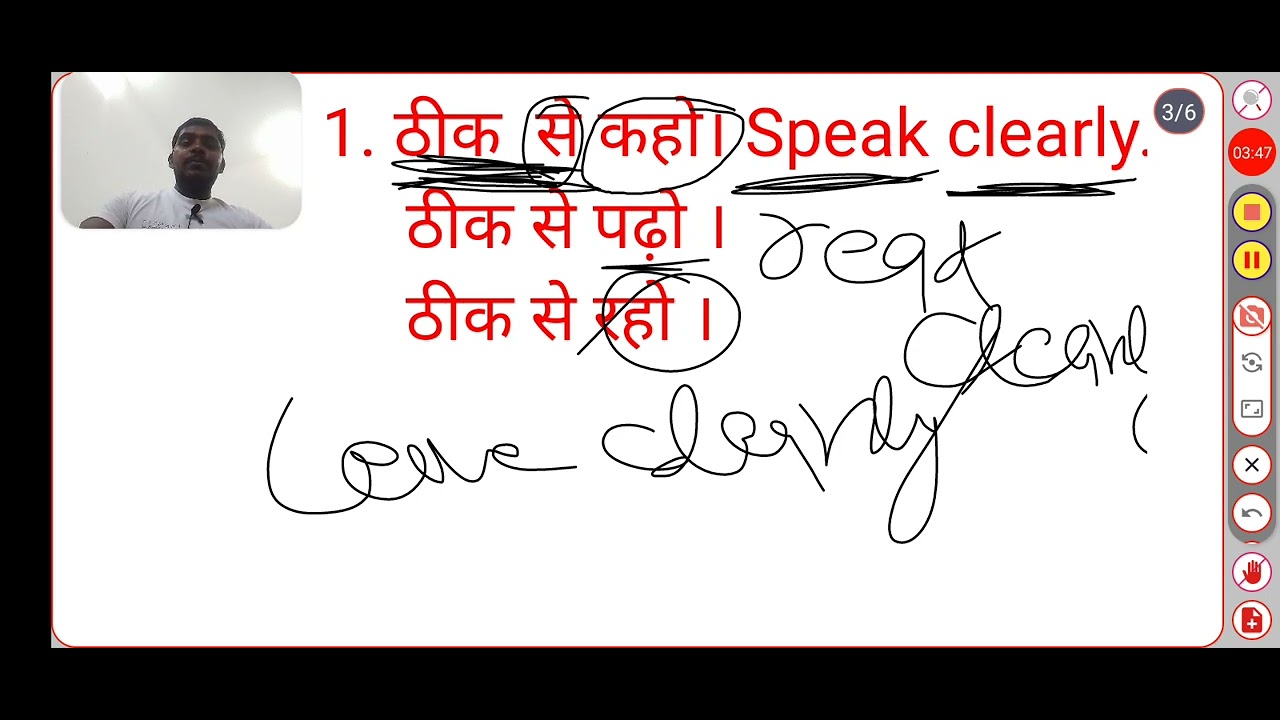 1. ठीक से कहो। Speak clearly.
3/6
03:47
ठीक से पढ़ो । read
ठीक से रहो ।
clearly